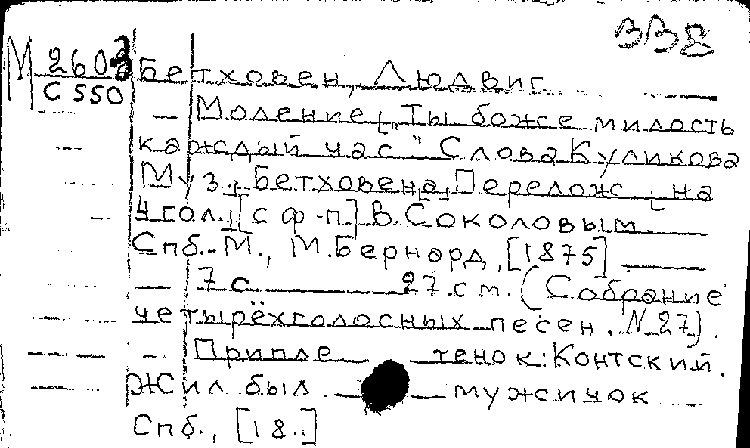 ВВ8
М 2603 Бетховен, Людвиг
С 550
Моление, „Ты боже милость
каждый час" Слова Куликова
Муз. Бетховена, Перелож. на
4 гол., [с ф-п.] В. Соколовым.
Спб.-М., М. Бернард, [1875]
7 с. 27 см. (Собрание
четырёхголосных песен. N 27).
Припле тенок: Контский.
Жил был мужичок
Спб., [18..]